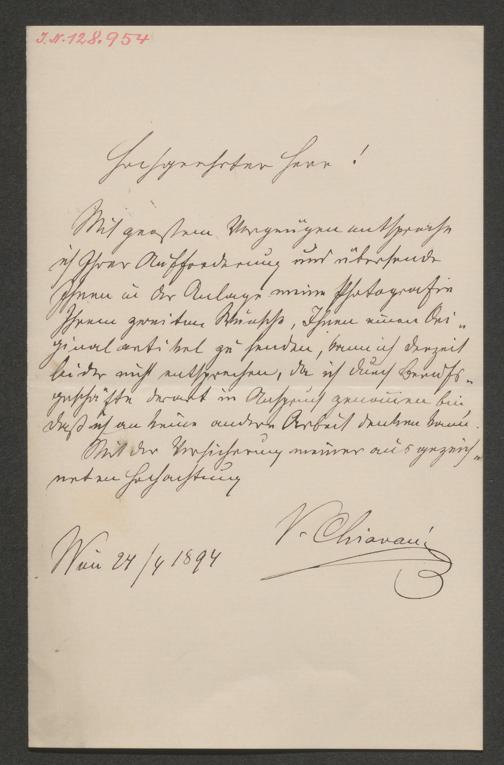 J. N. 128.954
Hochgeehrter Herr!
Mit grossem Vergnügen entspreche
ich Ihrer Aufforderung und übersende
Ihnen in der Anlage meine Photografie
Ihrem zweiten Wunsche, Ihnen einen Ori„
ginalartikel zu senden, kann ich derzeit
leider nicht entsprechen, da ich durch Berufs„
geschäfte derart in Anspruch genommen bin
daß ich an keine andere Arbeit denken kann.
Mit der Versicherung meiner ausgezeich„
neten Hochachtung
V. Chiavacci
Wien 24/4 1894